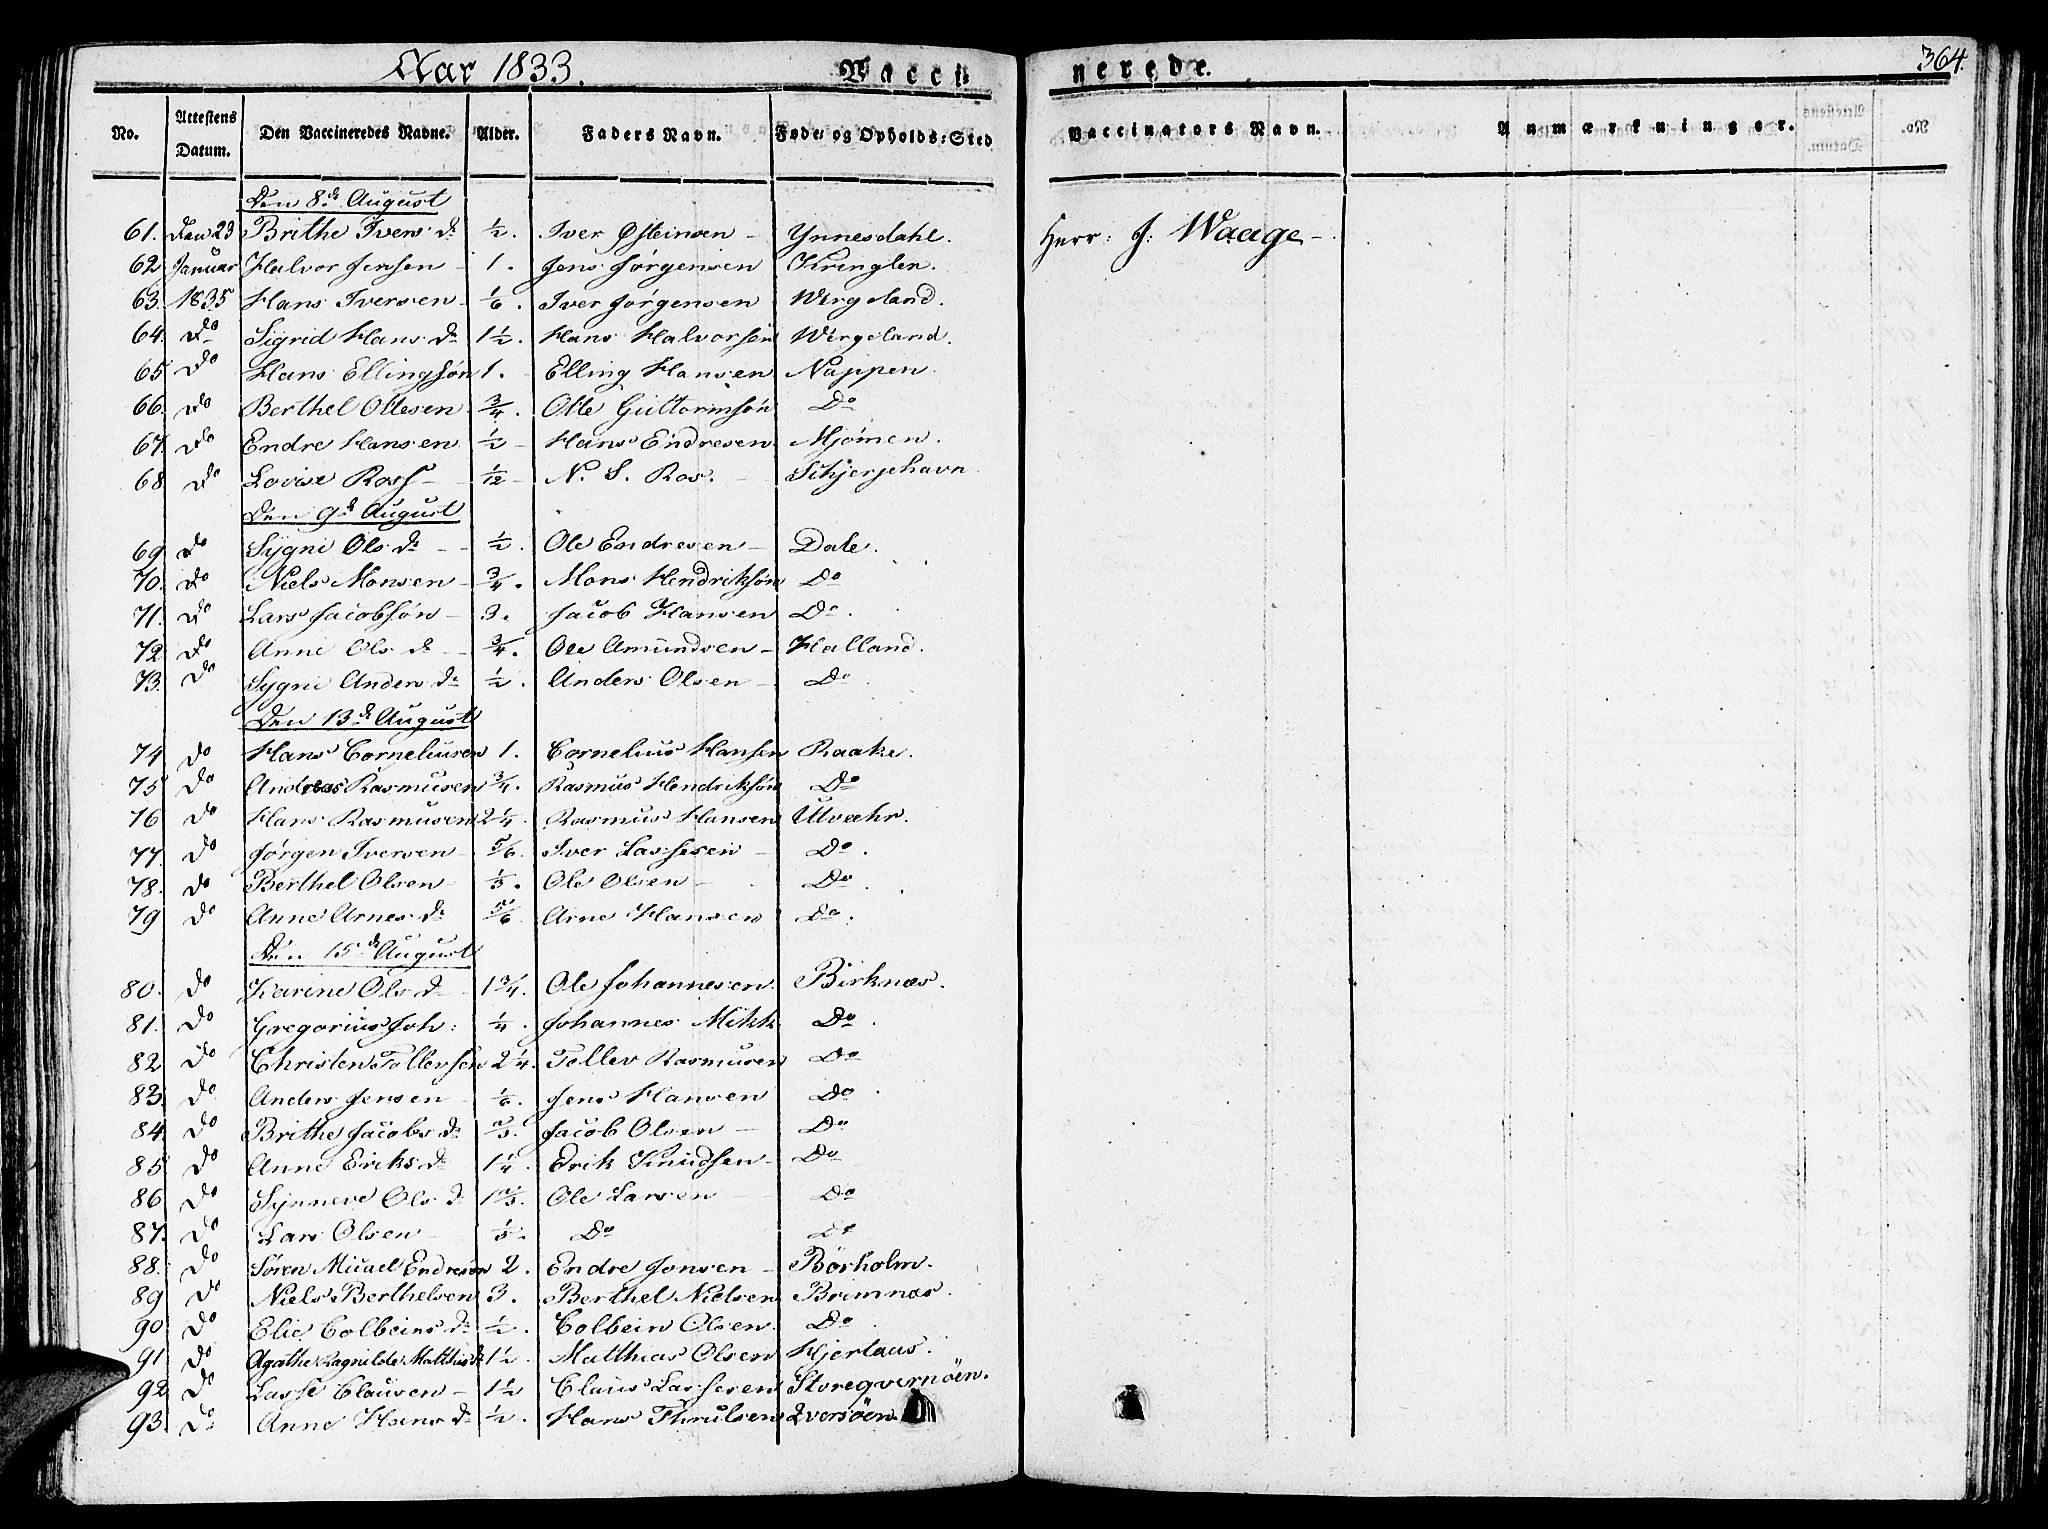 Aar 1833. Vacci-
nerede. 364.
No. Attestens Datum. Den Vaccineredes Navne. Alder. Faders Navn. Føde- og Opholds-Sted Vaccinators Navn. Anmærkninger.
Den 8de August
61. Den 23 Brithe Ivers d. 1/2. Iver Østeinsen Ynnesdahl. Herr: J: Waage
62 Januar Halvor Jensen 1. Jens Jørgensen Kringlen.
63. 1835 Hans Iversen 1/6. Iver Jørgensen Wergeland.
64. do Sigrid Hans d. 1 1/2. Hans Halvorsen Wergeland.
65 do Hans Ellingsøn 1. Elling Hansen Nappen
66. do Berthel Ottesen 3/4. Otte Guttormsøn Do
67. do Endre Hansen 1/2 Hans Endresen Mjømen.
68. do Lovise Ross 1/12 N. S. Ros. Skjerjehavn
Den 9de August
69. do Sygni Ols d. 1/2. Ole Endresen Dale.
70. do Niels Monsen 3/4. Mons Hendriksøn Do
71. do Lars Jacobsøn 3. Jacob Hansen Do.
72. do Anne Ols d. 3/4. Ole Amundsen Halland.
73. do Sygni Anders d. 1/2. Anders Olsen Do.
Den 13de August
74 do Hans Corneliusen 1. Cornelius Hansen Raake.
75 do Andreas Rasmusen 3/4. Rasmus Hendriksøn Do
76 do Hans Rasmusen 2 1/4. Rasmus Hansen Utvæhr.
77. do Jørgen Iversen 5/6. Iver Lassesen Do.
78. do Berthel Olsen 1/3. Ole Olsen Do
79 do Anne Arnes d. 5/6 Arne Hansen Do.
Den 15de August
80. do Karine Ols d. 1 3/4. Ole Johannesen Birknæs.
81. do Gregorius Joh: 1/4. Johannes Mikk Do.
82 do Christen Tollevsen 2 1/4. Tollev Rasmusen Do
83. do Anders Jensen 1/6. Jens Hansen Do.
84. do Brithe Jacobs d. 2/3. Jacob Olsen Do
85. do Anne Eriks d. 1 1/4. Erik Knudsen Do
86 do Synneve Ols d 1 2/3. Ole Larsen Do
87. do Lars Olsen 1/3. Do Do
88. do Søren Micael Endresen 2. Endre Jonsen Børholm.
89 do Niels Berthelsen 3. Berthel Nielsen Brimnæs.
90 do Elie Colbeins d. 1/2. Colbein Olsen Do.
91 do Agathe Ragnilde Matthis d. 1 1/2. Matthias Olsen Hjertaas.
92 do Lasse Clausen 1 1/2 Claus Lassesen Storeqvernøen.
93. do Anne Hans d. 1/2. Hans Thrulsen Qversøen.